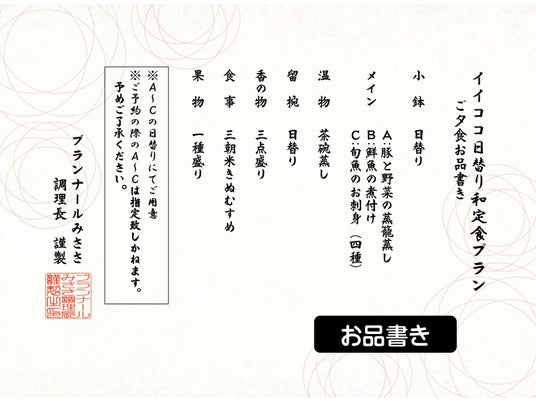 イイココ日替り和定食プラン
ご夕食お品書き
小鉢 日替り
メイン A:豚と野菜の蒸籠蒸し
B:鮮魚の煮付け
C:旬魚のお刺身(四種)
温物 茶碗蒸し
留椀 日替り
香の物 三点盛り
食事 三朝米きぬむすめ
果物 一種盛り
※A~Cの日替りにてご用意
※ご予約の際のA~Cは指定致しかねます。
予めご了承ください。
ブランナールみささ
調理長 謹製
ブランナール
みささ調理長
謹製之印
お品書き